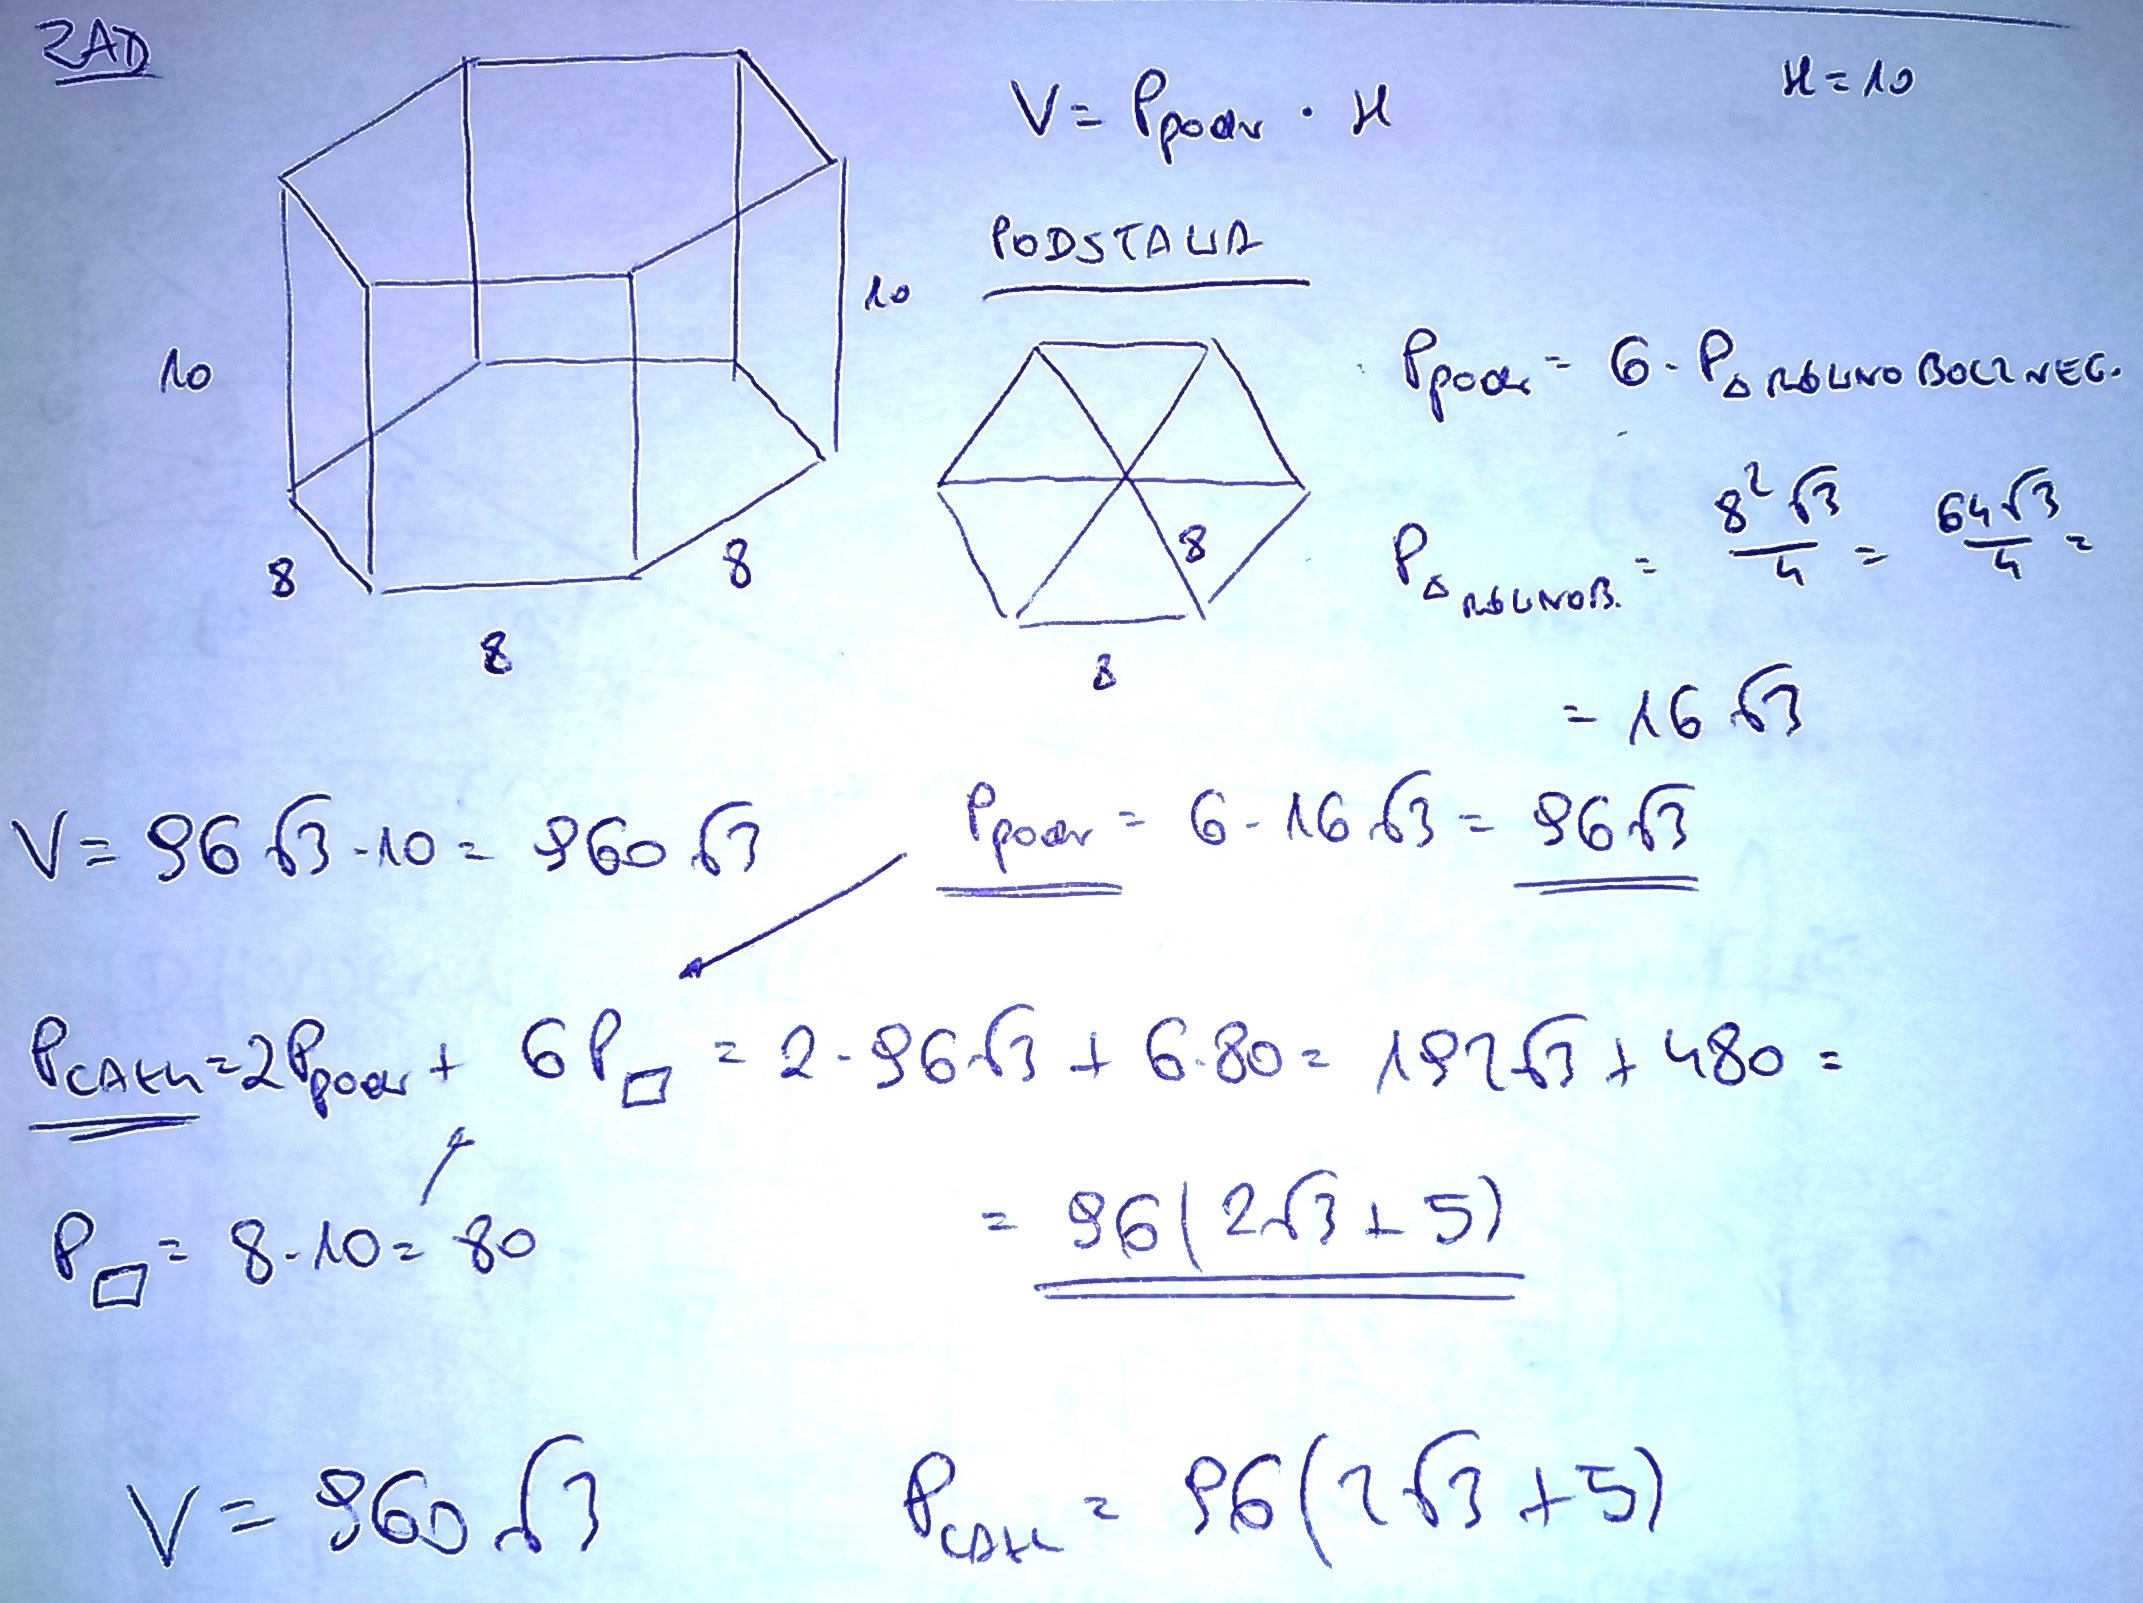 ZAD
V = Ppodst · H
H = 10
PODSTAWA
10
10
8
8
8
8
8
Ppodst = 6 · P△ RÓWNOBOCZNEG.
P△ RÓWNOB. = 8²√3/4 = 64√3/4 =
= 16√3
V = 96√3 · 10 = 960√3
Ppodst = 6 · 16√3 = 96√3
PCAŁK = 2Ppodst + 6P▭ = 2 · 96√3 + 6 · 80 = 192√3 + 480 =
P▭ = 8 · 10 = 80
= 96(2√3 + 5)
V = 960√3
PCAŁK = 96(2√3 + 5)